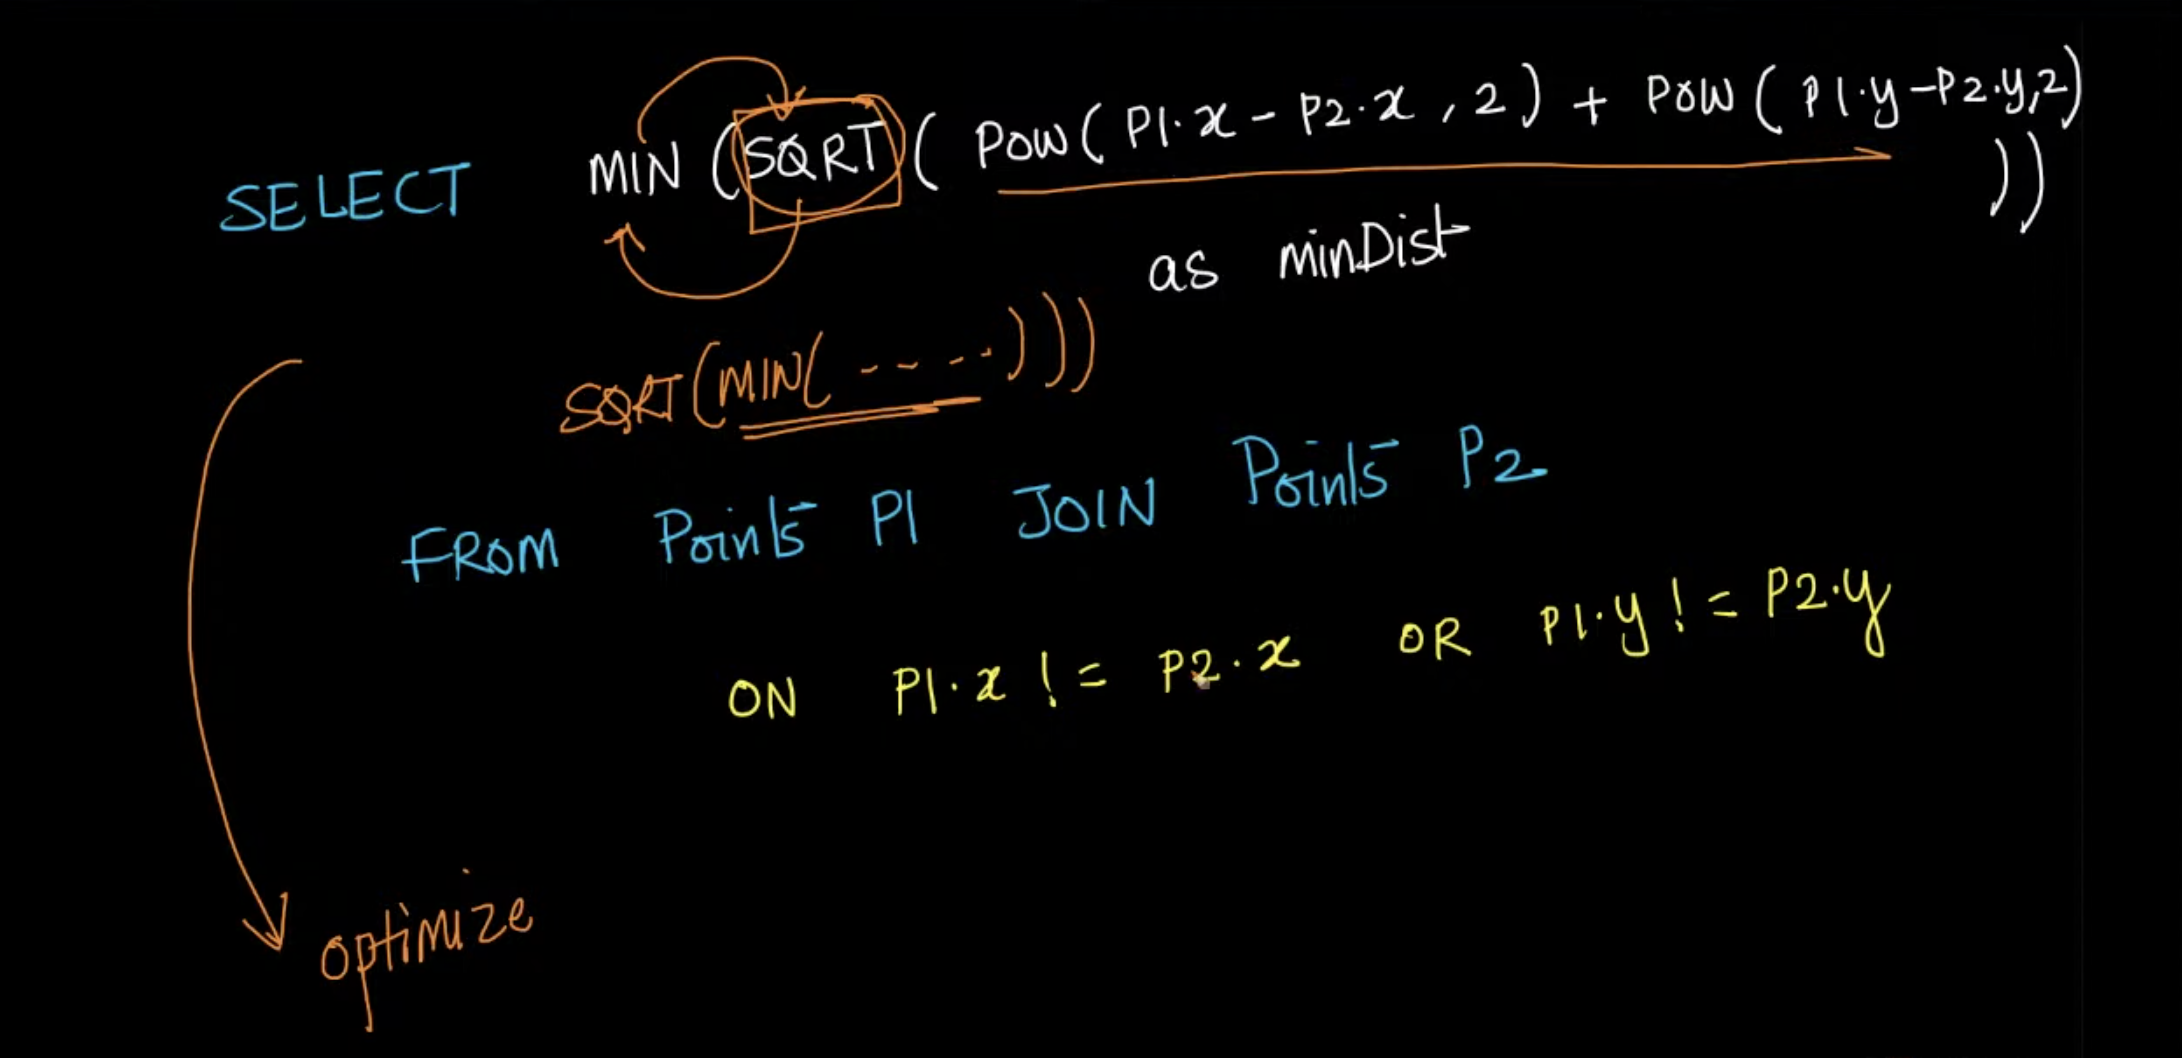 SELECT MIN (SQRT ( POW ( P1.x - P2.x , 2 ) + POW ( P1.y - P2.y, 2 )
)) 
as minDist
SQRT (MIN( - - - - - )))
FROM Points P1 JOIN Points P2
ON P1.x != P2.x OR P1.y != P2.y
optimize